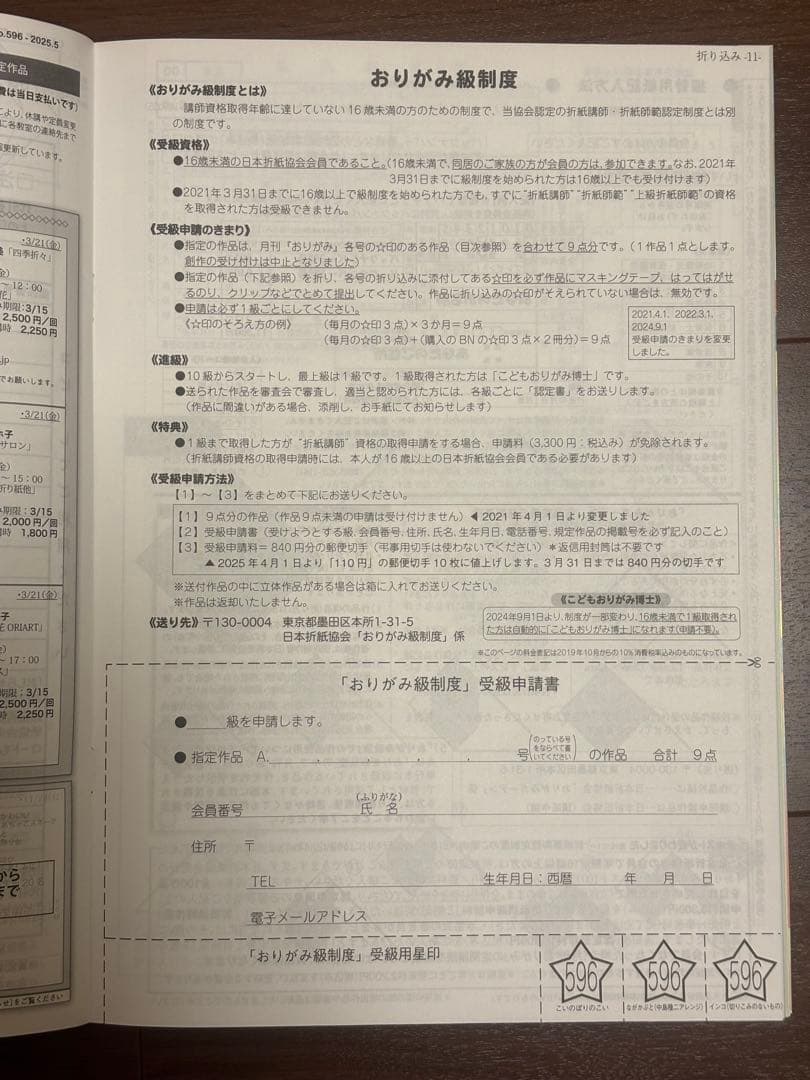 o.596 - 2025.5
定作品
費は当日支払いです)
により、休講や定員変更
に各教室の連絡先まで
更新しています。
・3/21(金)
「四季折々」
～12：00
花」
期限：3/15
2,500円/回
時 2,250円
.jp
でお願いします。
・3/21(金)
ホ子
サロン」
～15：00
折り紙他」
み期限：3/15
2,000円/回
時 1,800円
・3/21(金)
ORIART」
～17：00
期限：3/15
2,500円/回
時 2,250円
から
まで
せ」をご覧ください
折り込み -11-
おりがみ級制度
《おりがみ級制度とは》
講師資格取得年齢に達していない16歳未満の方のための制度で、当協会認定の折紙講師・折紙師範認定制度とは別
の制度です。
《受級資格》
●16歳未満の日本折紙協会会員であること。(16歳未満で、同居のご家族の方が会員の方は、参加できます。なお、2021年
3月31日までに級制度を始められた方は16歳以上でも受け付けます)
●2021年3月31日までに16歳以上で級制度を始められた方でも、すでに"折紙講師""折紙師範""上級折紙師範"の資格
を取得された方は受級できません。
《受級申請のきまり》
●指定の作品は、月刊「おりがみ」各号の☆印のある作品（目次参照）を合わせて9点分です。(1作品1点とします。
創作の受け付けは中止となりました)
●指定の作品（下記参照）を折り、各号の折り込みに添付してある☆印を必ず作品にマスキングテープ、はってはがせ
るのり、クリップなどでとめて提出してください。作品に折り込みの☆印がそえられていない場合は、無効です。
●申請は必ず1級ごとにしてください。
《☆印のそろえ方の例》 (毎月の☆印3点)×3か月＝9点
(毎月の☆印3点)＋(購入のBNの☆印3点×2冊分)＝9点
2021.4.1、2022.3.1、
2024.9.1
受級申請のきまりを変更
しました。
《進級》
●10級からスタートし、最上級は1級です。1級取得された方は「こどもおりがみ博士」です。
●送られた作品を審査会で審査し、適当と認められた方には、各級ごとに「認定書」をお送りします。
(作品に間違いがある場合、添削し、お手紙にてお知らせします)
《特典》
●1級まで取得した方が"折紙講師"資格の取得申請をする場合、申請料（3,300円：税込み）が免除されます。
(折紙講師資格の取得申請時には、本人が16歳以上の日本折紙協会会員である必要があります)
《受級申請方法》
【1】～【3】をまとめて下記にお送りください。
【1】9点分の作品（作品9点未満の申請は受け付けません）◀2021年4月1日より変更しました
【2】受級申請書（受けようとする級、会員番号、住所、氏名、生年月日、電話番号、規定作品の掲載号を必ず記入のこと）
【3】受級申請料＝840円分の郵便切手（弔事用切手は使わないでください）＊返信用封筒は不要です
▲2025年4月1日より「110円」の郵便切手10枚に値上げします。3月31日までは840円分の切手です
※送付作品の中に立体作品がある場合は箱に入れてお送りください。
※作品は返却いたしません。
《送り先》〒130-0004 東京都墨田区本所1-31-5
日本折紙協会「おりがみ級制度」係
《こどもおりがみ博士》
2024年9月1日より、制度が一部変わり、16歳未満で1級取得され
た方は自動的に「こどもおりがみ博士」になれます(申請不要)。
※このページの料金表記は2019年10月からの10%消費税率込みのものになっています。
「おりがみ級制度」受級申請書
●＿＿＿級を申請します。
●指定作品 A.　　，　　，　　，　　，　　号(のっている号をならべて書いてください)の作品 合計 9点
会員番号 氏名(ふりがな)
住所 〒
TEL 生年月日：西暦 年 月 日
電子メールアドレス
「おりがみ級制度」受級用星印
596 596 596
こいのぼりのこい ながかぶと(中島種二アレンジ) インコ(切りこみのないもの)